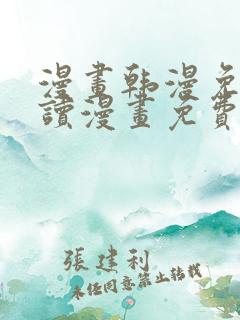 漫畫韩漫免
讀漫畫免費
張建利
未经同意禁止转载